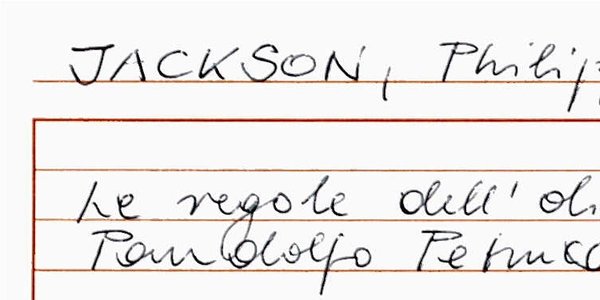 JACKSON, Philip
Le regole dell'
Pandolfo Petrucc